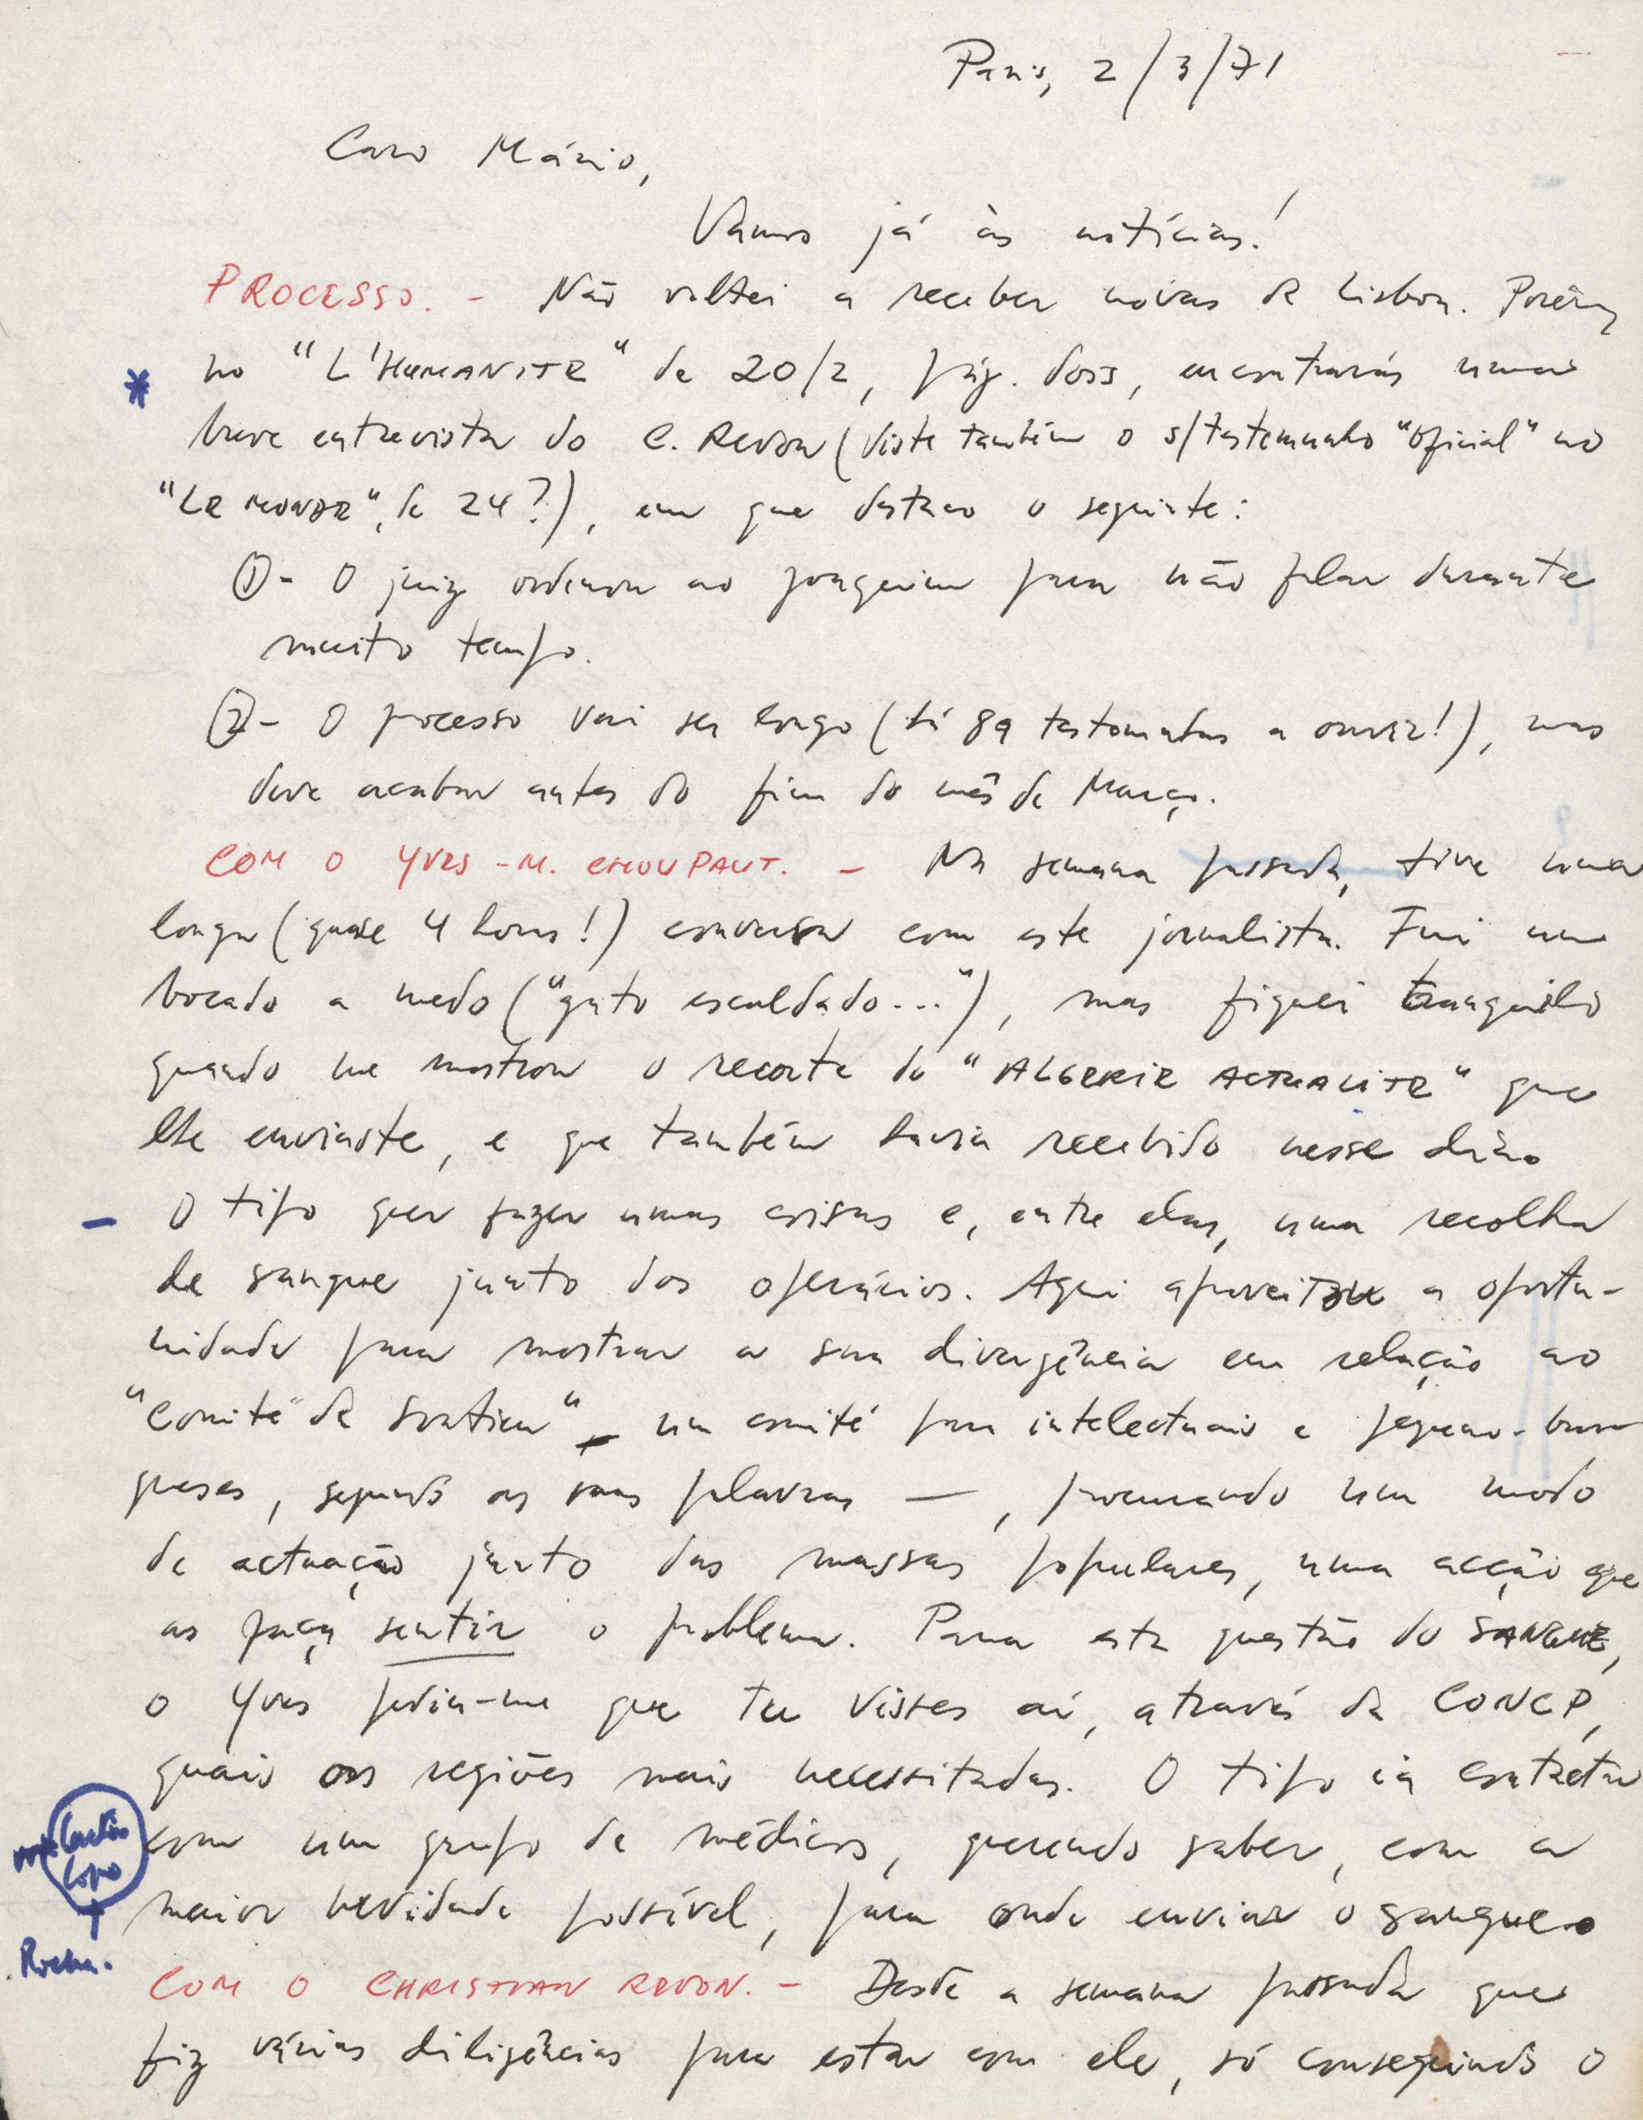 Paris, 2/3/71
Caro Mário,
Vamos já às notícias!
PROCESSO. - Não voltei a receber novas de Lisboa. Porém,
no "L'HUMANITE" de 20/2, pág. dois, encontrarás uma
breve entrevista do C. REVON (viste também o s/testemunho "oficial" no
"LE MONDE", de 24?), em que destaco o seguinte:
1) - O juiz ordenou ao Joaquim para não falar durante
muito tempo.
2) - O processo vai ser longo (há 89 testemunhas a ouvir!), mas
deve acabar antes do fim do mês de Março.
COM O YVES-M. CHOUPAUT. - Na semana passada, tive uma
longa (quase 4 horas!) conversa com este jornalista. Fui um
bocado a medo ("gato escaldado..."), mas fiquei tranquilo
quando me mostrou o recorte do "ALGERIE ACTUALITE" que
lhe enviaste, e que também havia recebido nesse dia.
- O tipo quer fazer umas coisas e, entre elas, uma recolha
de sangue junto dos operários. Aqui aproveitou a oportu-
nidade para mostrar a sua divergência em relação ao
"Comité de Soutien" - um comité para intelectuais e pequeno-bur
gueses, segundo as suas palavras —, procurando um modo
de actuação junto das massas populares, uma acção que
as faça sentir o problema. Para esta questão do SANGUE,
o Yves pedia-me que tu visses aí, através da CONCP,
quais as regiões mais necessitadas. O tipo ia contactar
com um grupo de médicos, querendo saber, com a
maior brevidade possível, para onde enviar o sangue.
Rocha.
COM O CHRISTIAN REVON. - Desde a semana passada que
fiz várias diligências para estar com ele, só conseguindo o